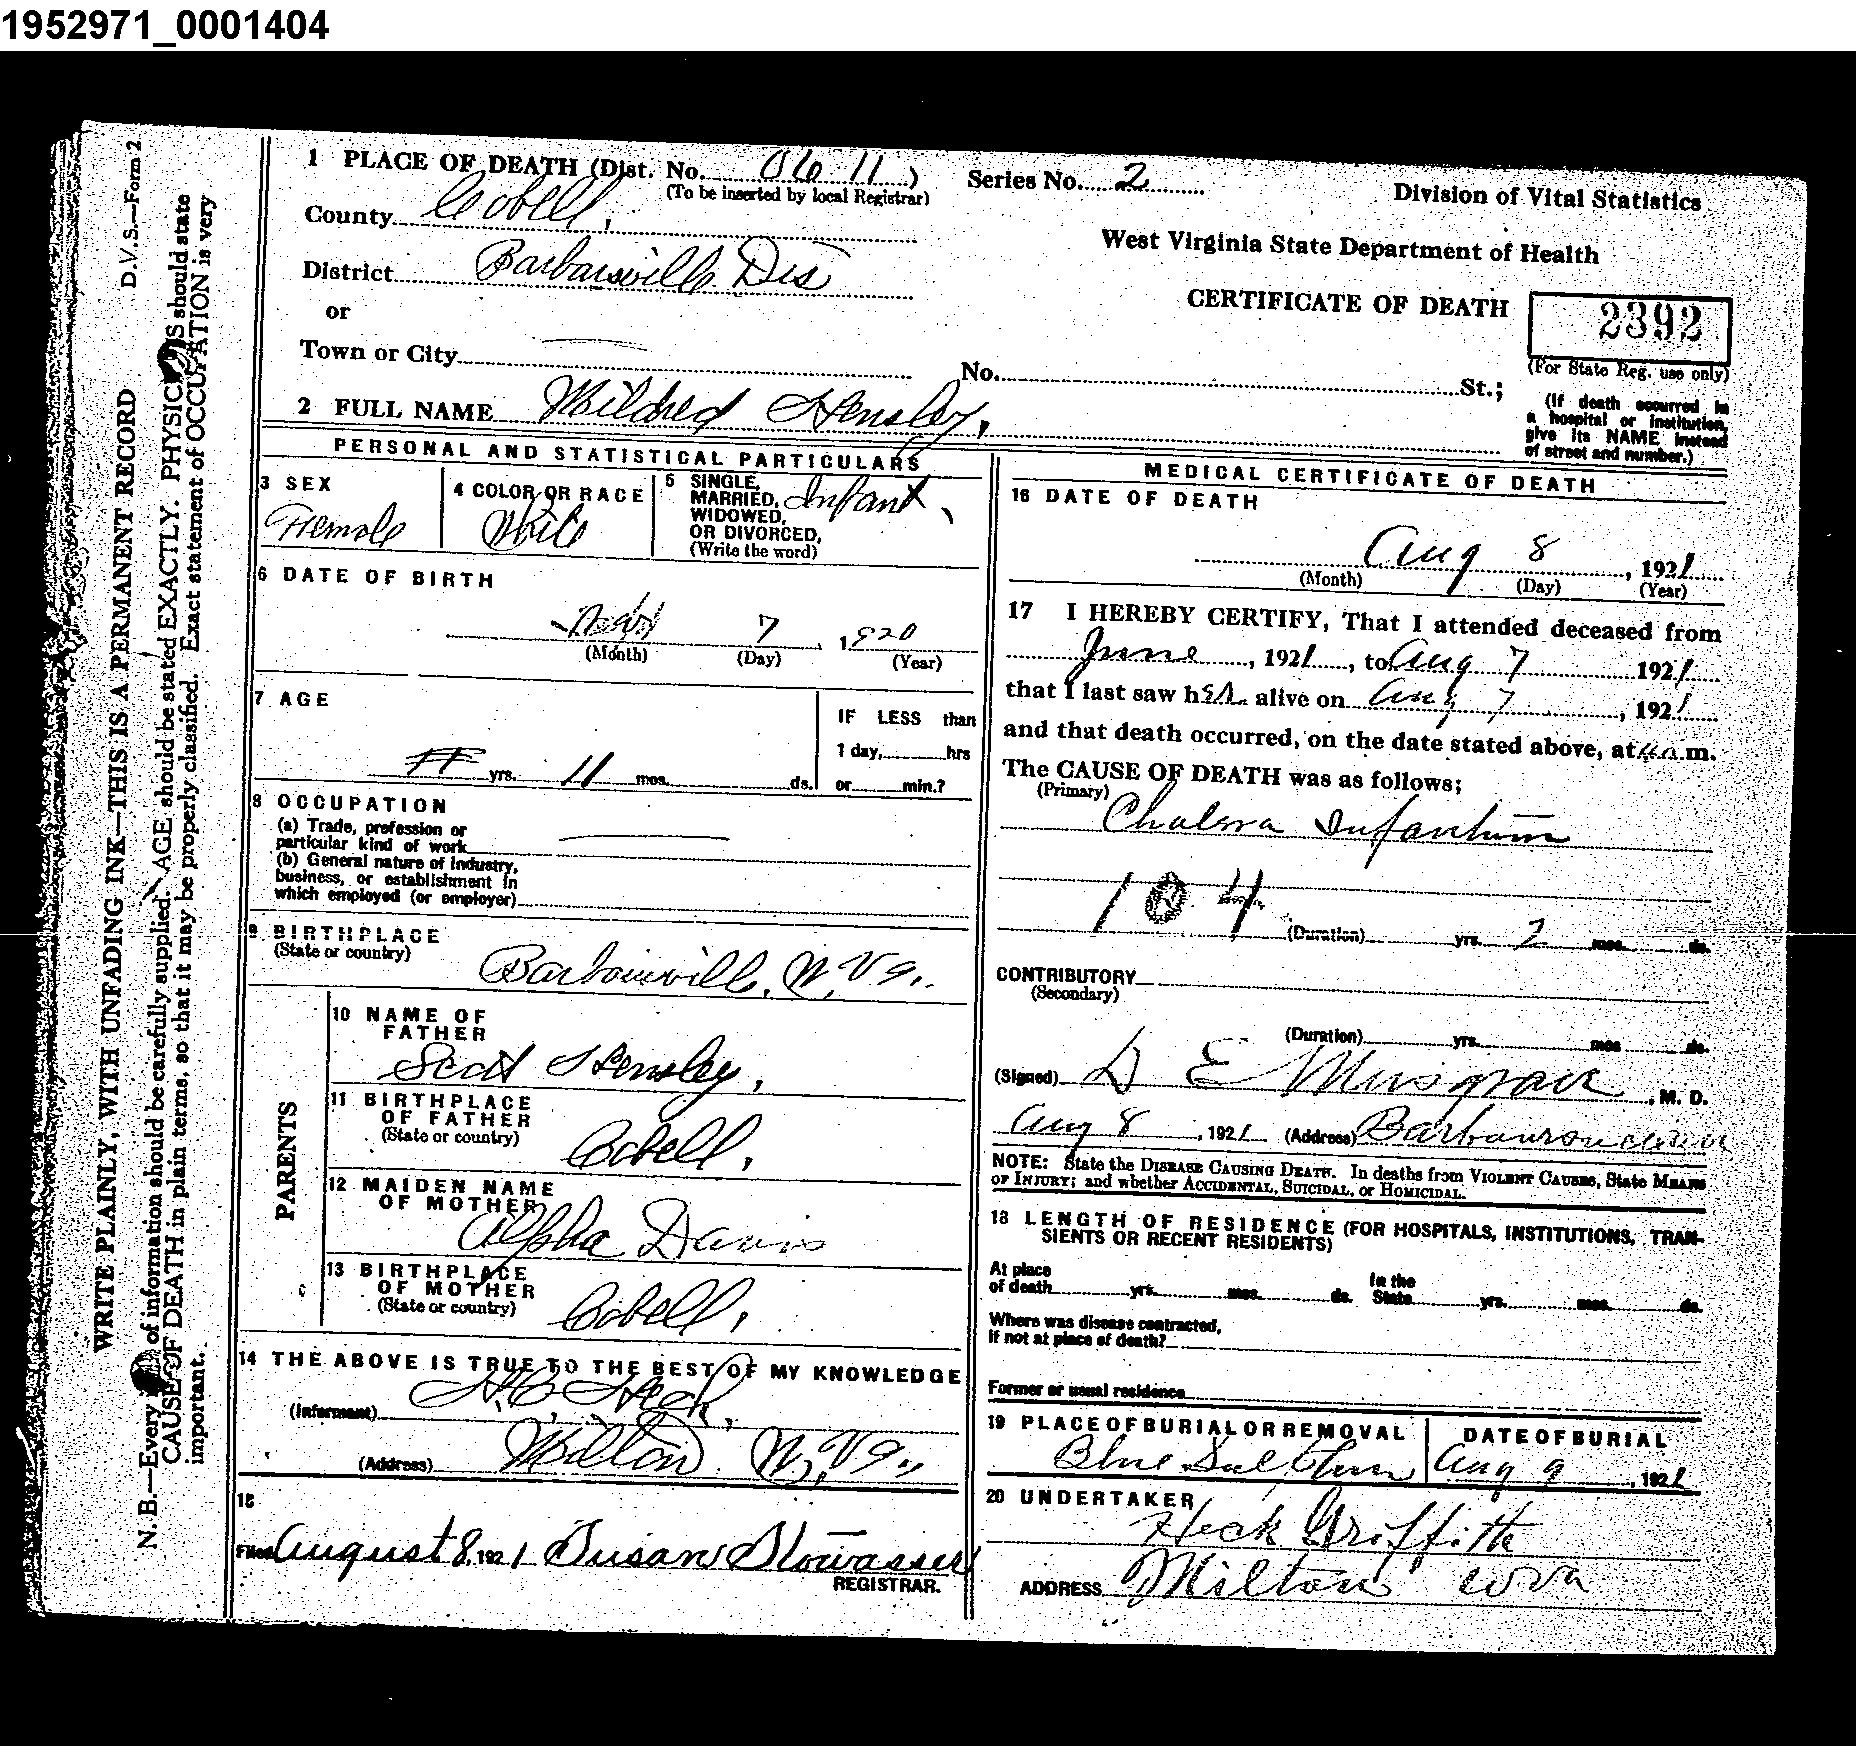 1952971_0001404
D.V.S.—Form 2
WRITE PLAINLY, WITH UNFADING INK—THIS IS A PERMANENT RECORD
N. B.—Every of information should be carefully supplied. AGE should be stated EXACTLY. PHYSICIANS should state
CAUSE OF DEATH in plain terms, so that it may be properly classified. Exact statement of OCCUPATION is very
important.
1 PLACE OF DEATH (Dist. No. 0611)
(To be inserted by local Registrar)
Series No. 2
Division of Vital Statistics
County Cobell,
West Virginia State Department of Health
District Barbarsville Dis
CERTIFICATE OF DEATH
2392
(For State Reg. use only)
or
Town or City
No. St.;
(If death occurred in
a hospital or institution,
give its NAME instead
of street and number.)
2 FULL NAME Mildred Hensley,
PERSONAL AND STATISTICAL PARTICULARS
3 SEX
Female
4 COLOR OR RACE
White
5 SINGLE,
MARRIED,
WIDOWED,
OR DIVORCED,
(Write the word)
Infant,
6 DATE OF BIRTH
7, 1920
(Month) (Day) (Year)
7 AGE
yrs. 11 mos. ds.
IF LESS than
1 day, hrs
or min.?
8 OCCUPATION
(a) Trade, profession or
particular kind of work
(b) General nature of industry,
business, or establishment in
which employed (or employer)
9 BIRTHPLACE
(State or country)
Barboursville, W. Va.
PARENTS
10 NAME OF
FATHER
Scott Hensley,
11 BIRTHPLACE
OF FATHER
(State or country)
Cobell,
12 MAIDEN NAME
OF MOTHER
Alpha Davis
13 BIRTHPLACE
OF MOTHER
(State or country)
Cobell,
14 THE ABOVE IS TRUE TO THE BEST OF MY KNOWLEDGE
(Informant) H. C. Heck,
(Address) Milton W. Va.,
15
Filed August 8, 1921 Susan Slowasser
REGISTRAR.
MEDICAL CERTIFICATE OF DEATH
16 DATE OF DEATH
Aug 8, 1921
(Month) (Day) (Year)
17 I HEREBY CERTIFY, That I attended deceased from
June, 1921, to Aug 7 1921
that I last saw her alive on Aug 7, 1921
and that death occurred, on the date stated above, at m.
The CAUSE OF DEATH was as follows;
(Primary)
Cholera Infantum
104
(Duration) yrs. 2 mos. ds.
CONTRIBUTORY
(Secondary)
(Duration) yrs. mos. ds.
(Signed) D E Musgrave, M. D.
Aug 8, 1921 (Address)
NOTE: State the DISEASE CAUSING DEATH. In deaths from VIOLENT CAUSES, State MEANS
OF INJURY; and whether ACCIDENTAL, SUICIDAL, or HOMICIDAL.
18 LENGTH OF RESIDENCE (FOR HOSPITALS, INSTITUTIONS, TRAN-
SIENTS OR RECENT RESIDENTS)
At place
of death yrs. mos. ds.
In the
State yrs. mos. ds.
Where was disease contracted,
If not at place of death?
Former or usual residence
19 PLACE OF BURIAL OR REMOVAL
Blue
DATE OF BURIAL
Aug 9, 1921
20 UNDERTAKER
Heck Griffith
ADDRESS Milton W Va